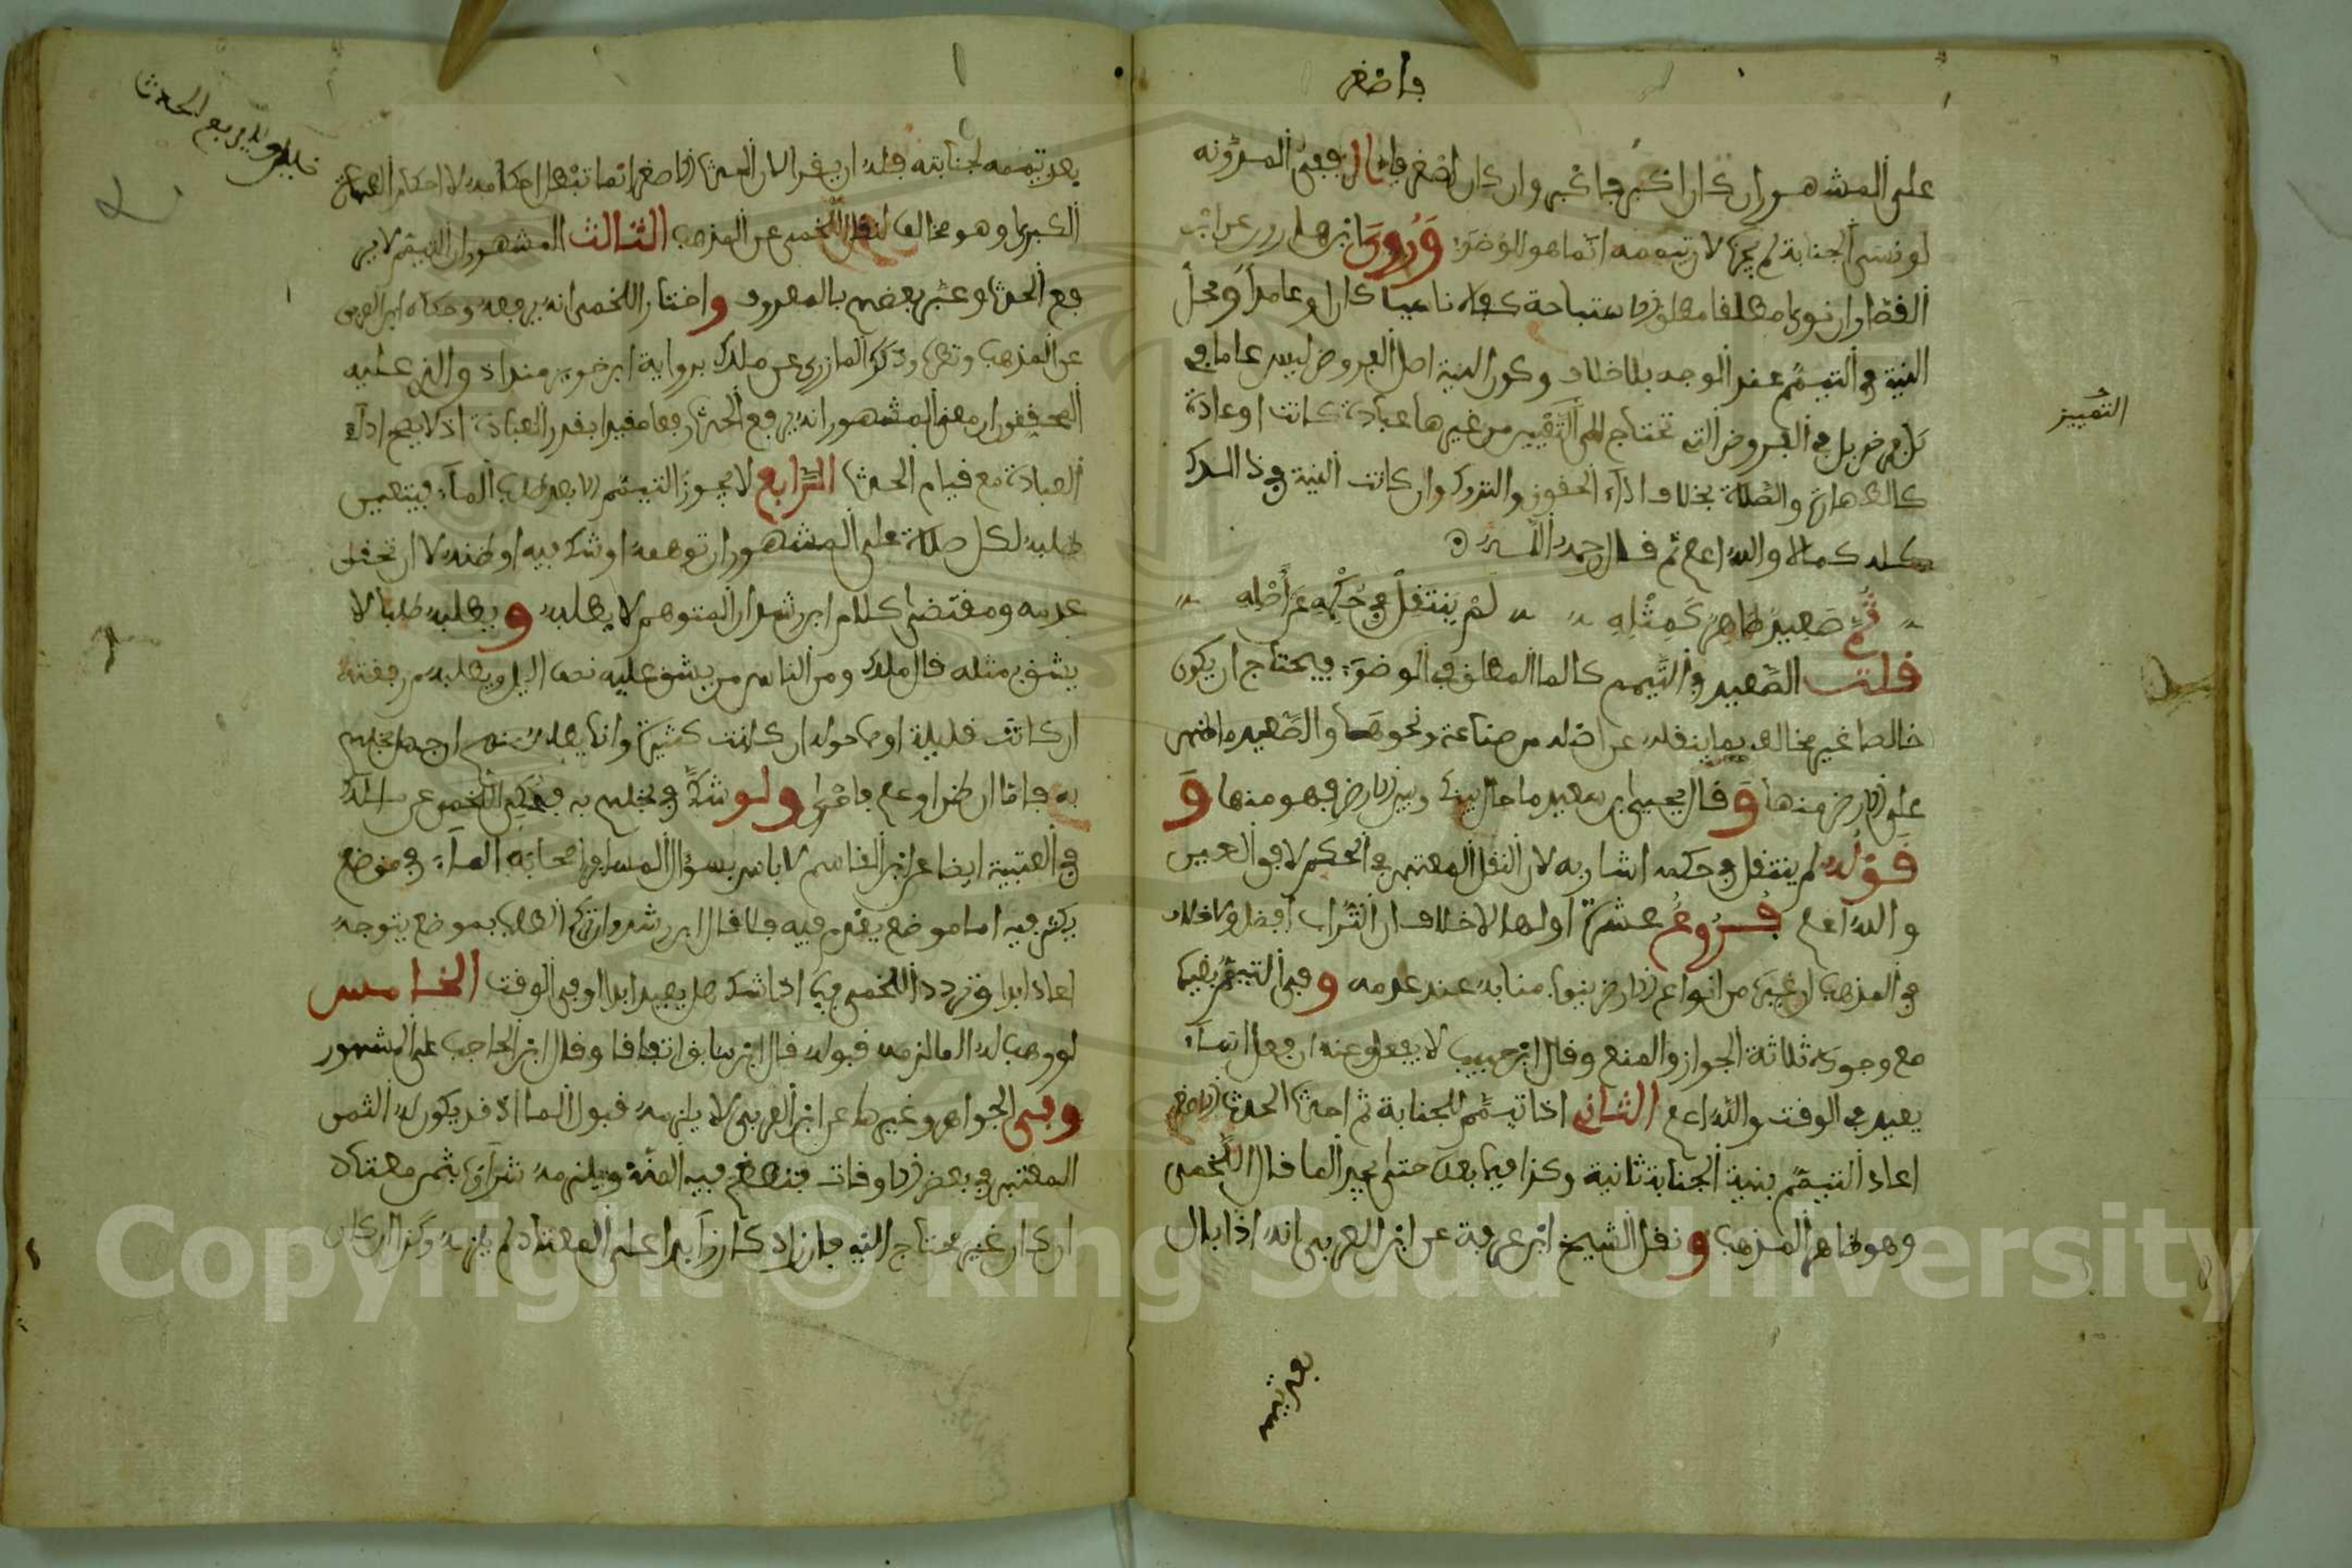 فاصغر
على المشهور ان كان اكبر فاكبر وان كان اصغر فاصغر ففي المدونة
لو نسي الجنابة لم يجزه لان تيممه انما هو للوضوء وروى ابن مسلمة عن ابن
القصار ان نوى مطلق الاستباحة كفاه ناسيا كان او عامدا ومحل
النية في التيمم عند الوجه بلا خلاف وكون النية اصل الفروض ليس عاما في
كل فرض بل في الفروض التي تحتاج الى التمييز من غيرها عبادة كانت او عادة
كالطهارة والصلاة بخلاف اداء الحقوق والتروك وان كانت النية في ذلك
كله كمالا والله اعلم ثم قال رحمه الله
ثم صعيد طاهر كمثله لم ينتقل في حكمه عن اصله
قلت الصعيد في التيمم كالماء المطلق في الوضوء فيحتاج ان يكون
خالصا غير مخالف بما ينقله عن اصله من صناعة ونحوها والصعيد ما ظهر
على الارض منها وقال يحيى بن سعيد ما حال بينك وبين الارض فهو منها و
قوله لم ينتقل في حكمه اشار به لان النقل المعتبر في الحكم لا في العين
والله اعلم فروع عشرة اولها لا خلاف ان التراب افضل ولا خلاف
في المذهب ان غيره من انواع الارض ينوب منابه عند عدمه وفي التيمم بغيره
مع وجوده ثلاثة الجواز والمنع وقال ابن حبيب لا يفعل وعنه ان فعل اساء
يعيد في الوقت والله اعلم الثاني اذا تيمم للجنابة ثم احدث الحدث الاصغر
اعاد التيمم بنية الجنابة ثانية وكذا فيما بعده حتى يجد الماء قال اللخمي
وهو ظاهر المذهب ونقل الشيخ ابن عرفة عن ابن العربي انه اذا بال
بعد تيممه
التمييز
بعد تيممه لجنابته فله ان يقرا لان الحدث الاصغر انما تبطل احكامه لا احكام الطهارة
الكبرى وهو مخالف لنقل اللخمي عن المذهب الثالث المشهور ان التيمم لا ير
فع الحدث وعبر بعضهم بالمعروف واختار اللخمي انه يرفعه وحكاه ابن العربي
عن المذهب وذكر المازري عن ملك برواية ابن خويز منداد والذي عليه
المحققون ان معنى المشهور انه يرفع الحدث رفعا مقيدا بقدر العبادة اذ لا يصح اداء
العبادة مع قيام الحدث الرابع لا يجوز التيمم الا بعد طلب الماء فيتعين
طلبه لكل صلاة على المشهور ان توهمه او شك فيه او ظنه لا ان تحقق
عدمه ومقتضى كلام ابن رشد ان المتوهم لا يطلبه ويطلبه طلبا لا
يشق بمثله قال ملك ومن الناس من يشق عليه نصف الميل ويطلبه من رفقته
ان كانت قليلة او من حوله ان كانت كثيرة وانما يطلبه منهم ان جهل بخلهم
به فاما ان ظن او علم فاحرى ولو شك في بخلهم به فحكى اللخمي عن ملك
في العتبية ايضا عن ابن القاسم لا باس بسؤال المسافر اصحابه الماء في موضع
يكثر فيه اما موضع يعدم فيه فلا قال ابن رشد وان ترك الطلب بموضع يتوجه
اعاد ابدا وتردد اللخمي فيما اذا شك هل يعيد ابدا او في الوقت الخامس
لو وهب له الماء لزمه قبوله قال ابن سابق اتفاقا وقال ابن الحاجب على المشهور
وفي الجواهر وغيرها عن ابن العربي لا يلزمه قبول الماء اذ قد يكون له الثمن
المعتبر في بعض الاوقات فتعظم فيه المنة ويلزمه شراؤه بثمن معتاد
ان كان غير محتاج اليه فان زاد كان زائدا على المعتاد لم يلزمه وكذا ان كان